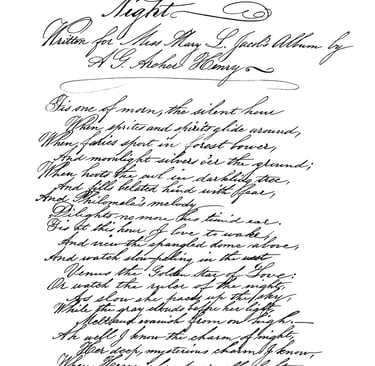 Night.
Written for Miss Mary L. Jacob's Album by
A. G. Archer Henry
Tis one of morn, the silent hour
When sprites and spirits glide around,
When faries sport in forest bower,
And moonlight silvers o'er the ground;
When hoots the owl in darkling tree,
And fills belated hind with fear,
And Philomela's melody
Delights no more this timid ear.
Tis at this hour I love to wake,
And view the spangled dome above,
And watch slow-paling in the west
Venus the Golden Star of Love:
Or watch the ruler of the night,
As slow she paces up the sky,
While the gray clouds before her light,
Melt and vanish from on high.—
Ah well I know the charm of night,
Her deep, mysterious charm I know,
When